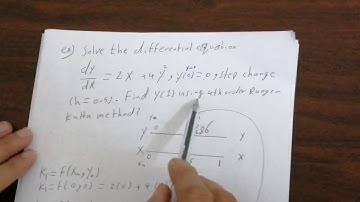 ex) Solve the differential equation
dy/dx = 2X + 4Y², Y(0)=0, step change
(h=0.5). Find Y(1) using 4th order Runge
Kutta method?
Y 0
Y
X 0
1
X
K₁ = F(X₀,Y₀)
K₁ = F(0,0) = 2(0) + 4(